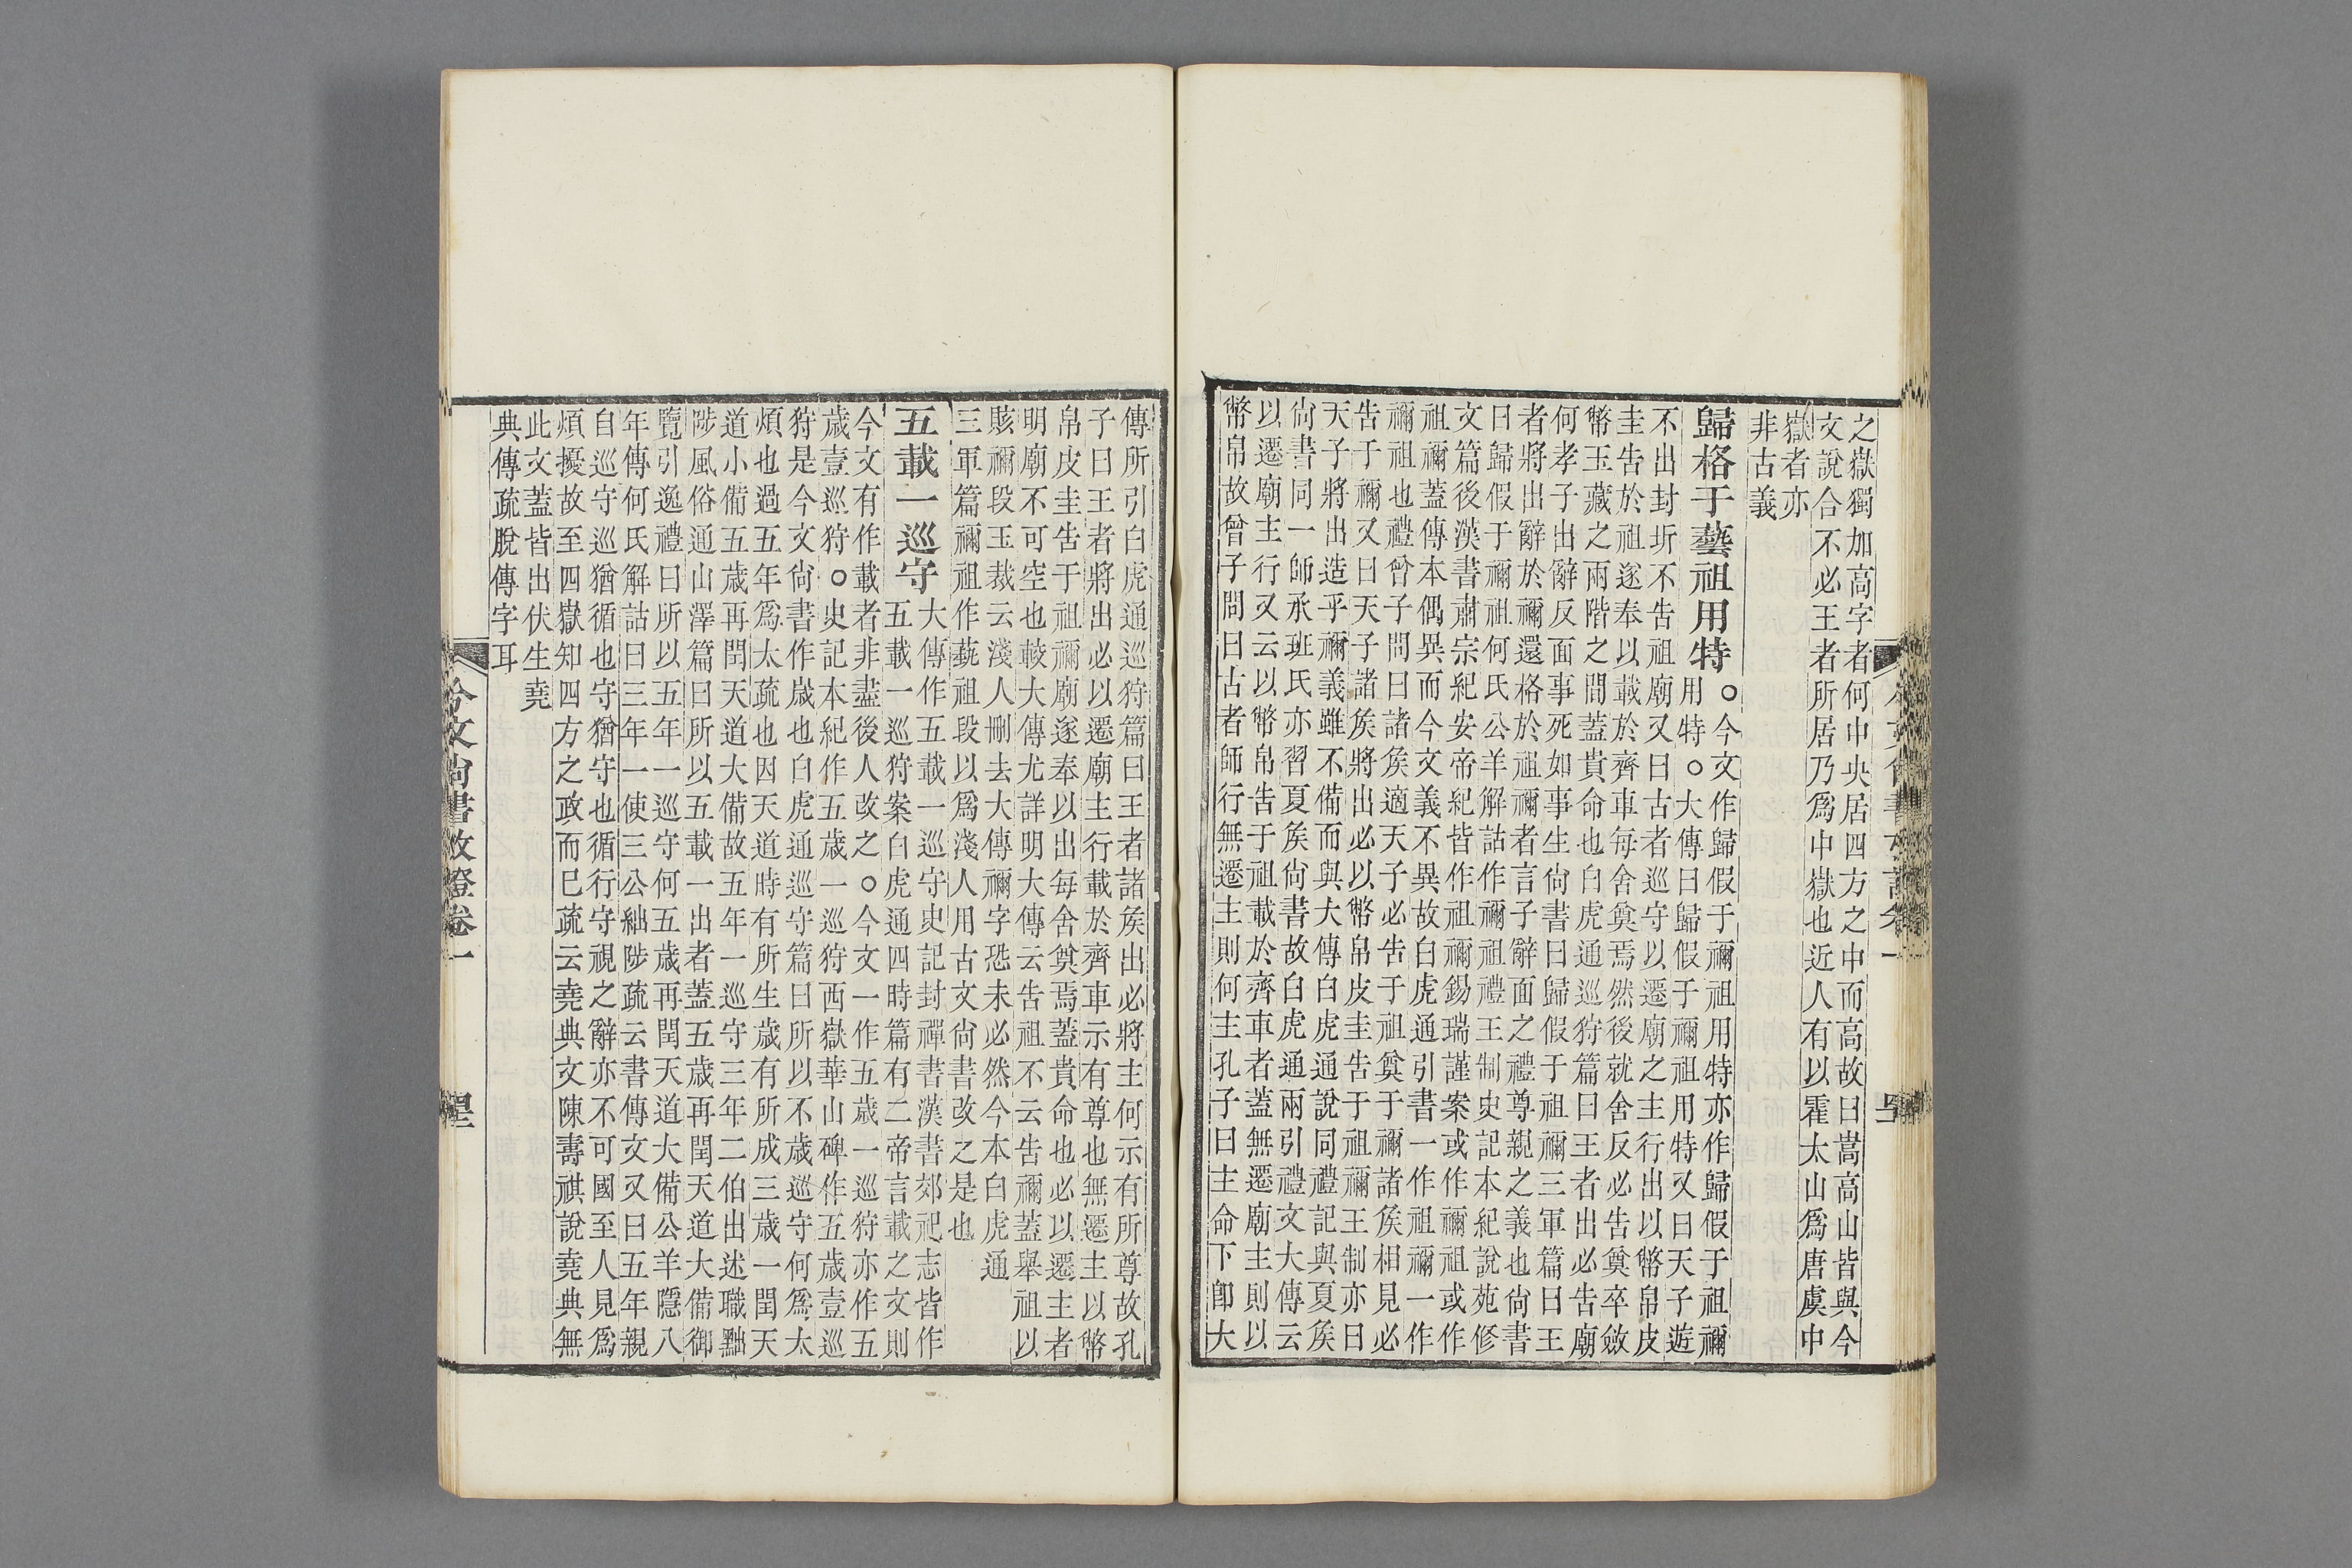 之嶽獨加高字者何中央居四方之中而高故曰嵩高山皆與今
文說合不必王者所居乃爲中嶽也近人有以霍太山爲唐虞中
嶽者亦
非古義
歸格于藝祖用特
○今文作歸假于禰祖用特亦作歸假于祖禰
用特○大傳曰歸假于禰祖用特又曰天子遊
不出封圻不告祖廟又曰古者巡守以遷廟之主行出以幣帛皮
圭告於祖遂奉以載於齊車每舍奠焉然後就舍反必告奠卒斂
幣玉藏之兩階之間蓋貴命也白虎通巡狩篇曰王者出必告廟
何孝子出辭反面事死如事生尙書曰歸假于祖禰三軍篇曰王
者將出辭於禰還格於祖禰者言子辭面之禮尊親之義也尙書
曰歸假于禰祖何氏公羊解詁作禰祖禮王制史記本紀說苑修
文篇後漢書肅宗紀安帝紀皆作祖禰錫瑞謹案或作禰祖或作
祖禰蓋傳本偶異而今文義不異故白虎通引書一作祖禰一作
禰祖也禮曾子問曰諸矦適天子必告于祖奠于禰諸矦相見必
告于禰又曰天子諸矦將出必以幣帛皮圭告于祖禰王制亦曰
天子將出造乎禰義雖不備而與大傳白虎通說同禮記與夏矦
尙書同一師承班氏亦習夏矦尙書故白虎通兩引禮文大傳云
以遷廟主行又云以幣帛告于祖載於齊車者蓋無遷廟主則以
幣帛故曾子問曰古者師行無遷主則何主孔子曰主命下卽大
傳所引白虎通巡狩篇曰王者諸矦出必將主何示有所尊故孔
子曰王者將出必以遷廟主行載於齊車示有尊也無遷主以幣
帛皮圭告于祖禰廟遂奉以出每舍奠焉蓋貴命也必以遷主者
明廟不可空也較大傳尤詳明大傳云告祖不云告禰蓋舉祖以
賅禰段玉裁云淺人刪去大傳禰字恐未必然今本白虎通
三軍篇禰祖作藝祖段以爲淺人用古文尙書改之是也
五載一巡守
大傳作五載一巡守史記封禪書漢書郊祀志皆作
五載一巡狩案白虎通四時篇有二帝言載之文則
今文有作載者非盡後人改之○今文一作五歲一巡狩亦作五
歲壹巡狩○史記本紀作五歲一巡狩西嶽華山碑作五歲壹巡
狩是今文尙書作歲也白虎通巡守篇曰所以不歲巡守何爲太
煩也過五年爲太疏也因天道時有所生歲有所成三歲一閏天
道小備五歲再閏天道大備故五年一巡守三年二伯出述職黜
陟風俗通山澤篇曰所以五載一出者蓋五歲再閏天道大備御
覽引逸禮曰所以五年一巡守何五歲再閏天道大備公羊隱八
年傳何氏解詁曰三年一使三公絀陟疏云書傳文又曰五年親
自巡守巡猶循也守猶守也循行守視之辭亦不可國至人見爲
煩擾故至四嶽知四方之政而已疏云堯典文陳壽祺說堯典無
此文蓋皆出伏生堯
典傳疏脫傳字耳
今文尙書攷證卷一